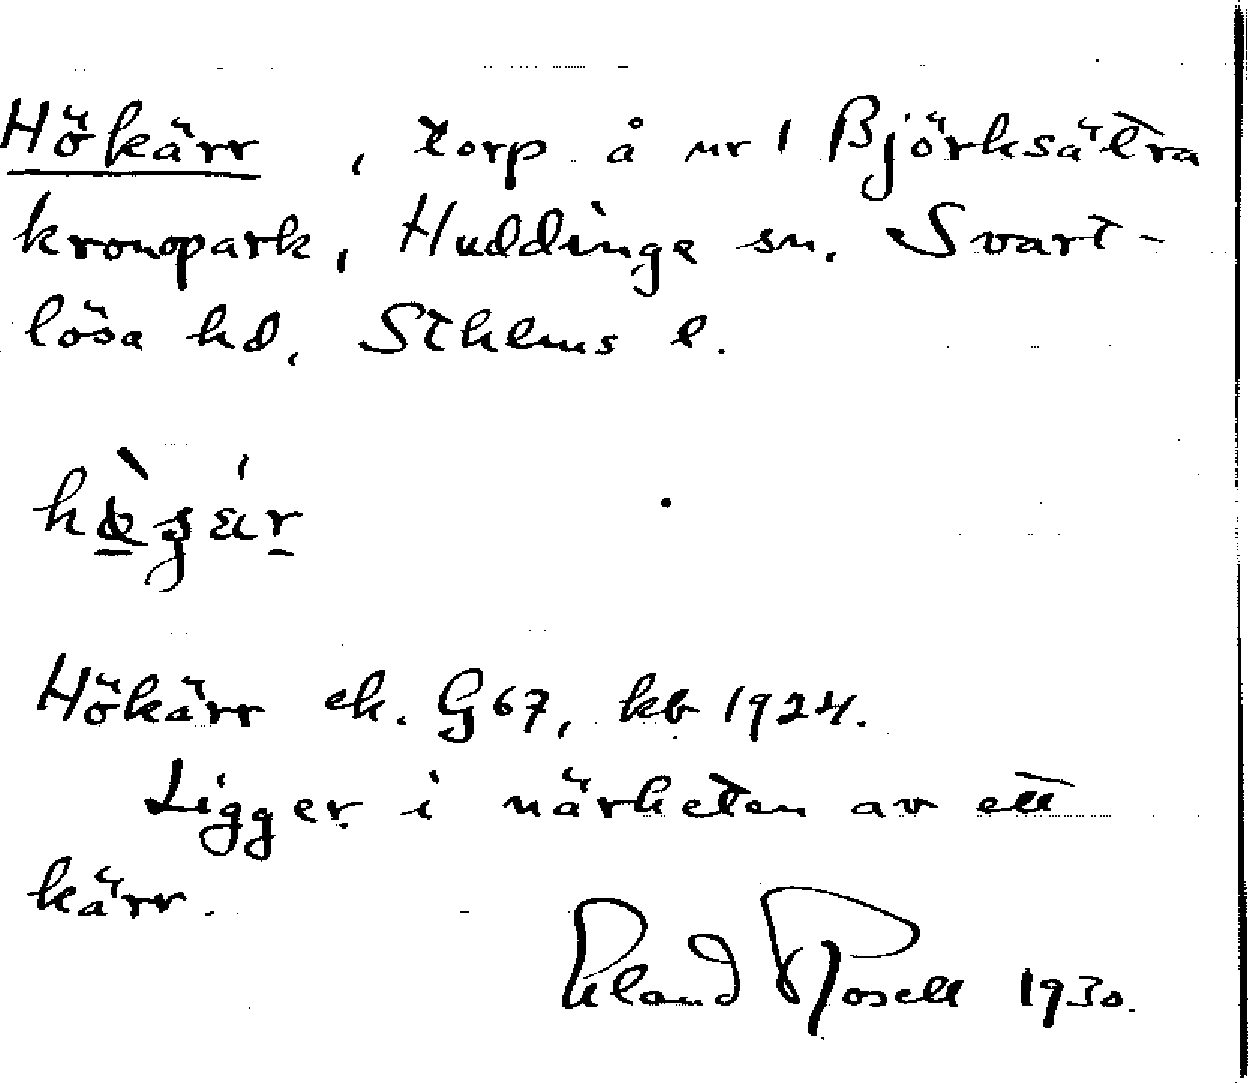 Hökärr, torp å nr 1 Björksätra
kronopark, Huddinge sn. Svart-
lösa hd, Sthlms l.
Hökärr ek. G67, kb 1924.
Ligger i närheten av ett
kärr.
Erland Rosell 1930.